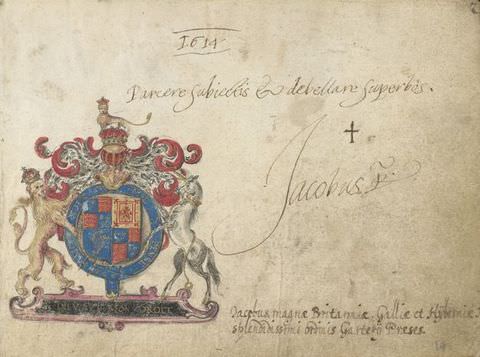 1614
Parcere subiectis & debellare superbos.
Jacobus R.
DIEV ET MON DROIT
Jacobus magnæ Britanniæ, Galliæ et Hyberniæ
splendidissimi ordinis Garterij Preses.